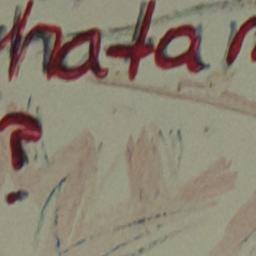 hatar
?